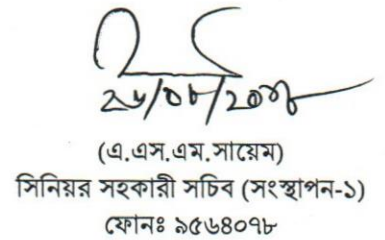 (এ.এস.এম.সায়েম)
সিনিয়র সহকারী সচিব (সংস্থাপন-১)
ফোনঃ ৯৫৬৪০৭৮